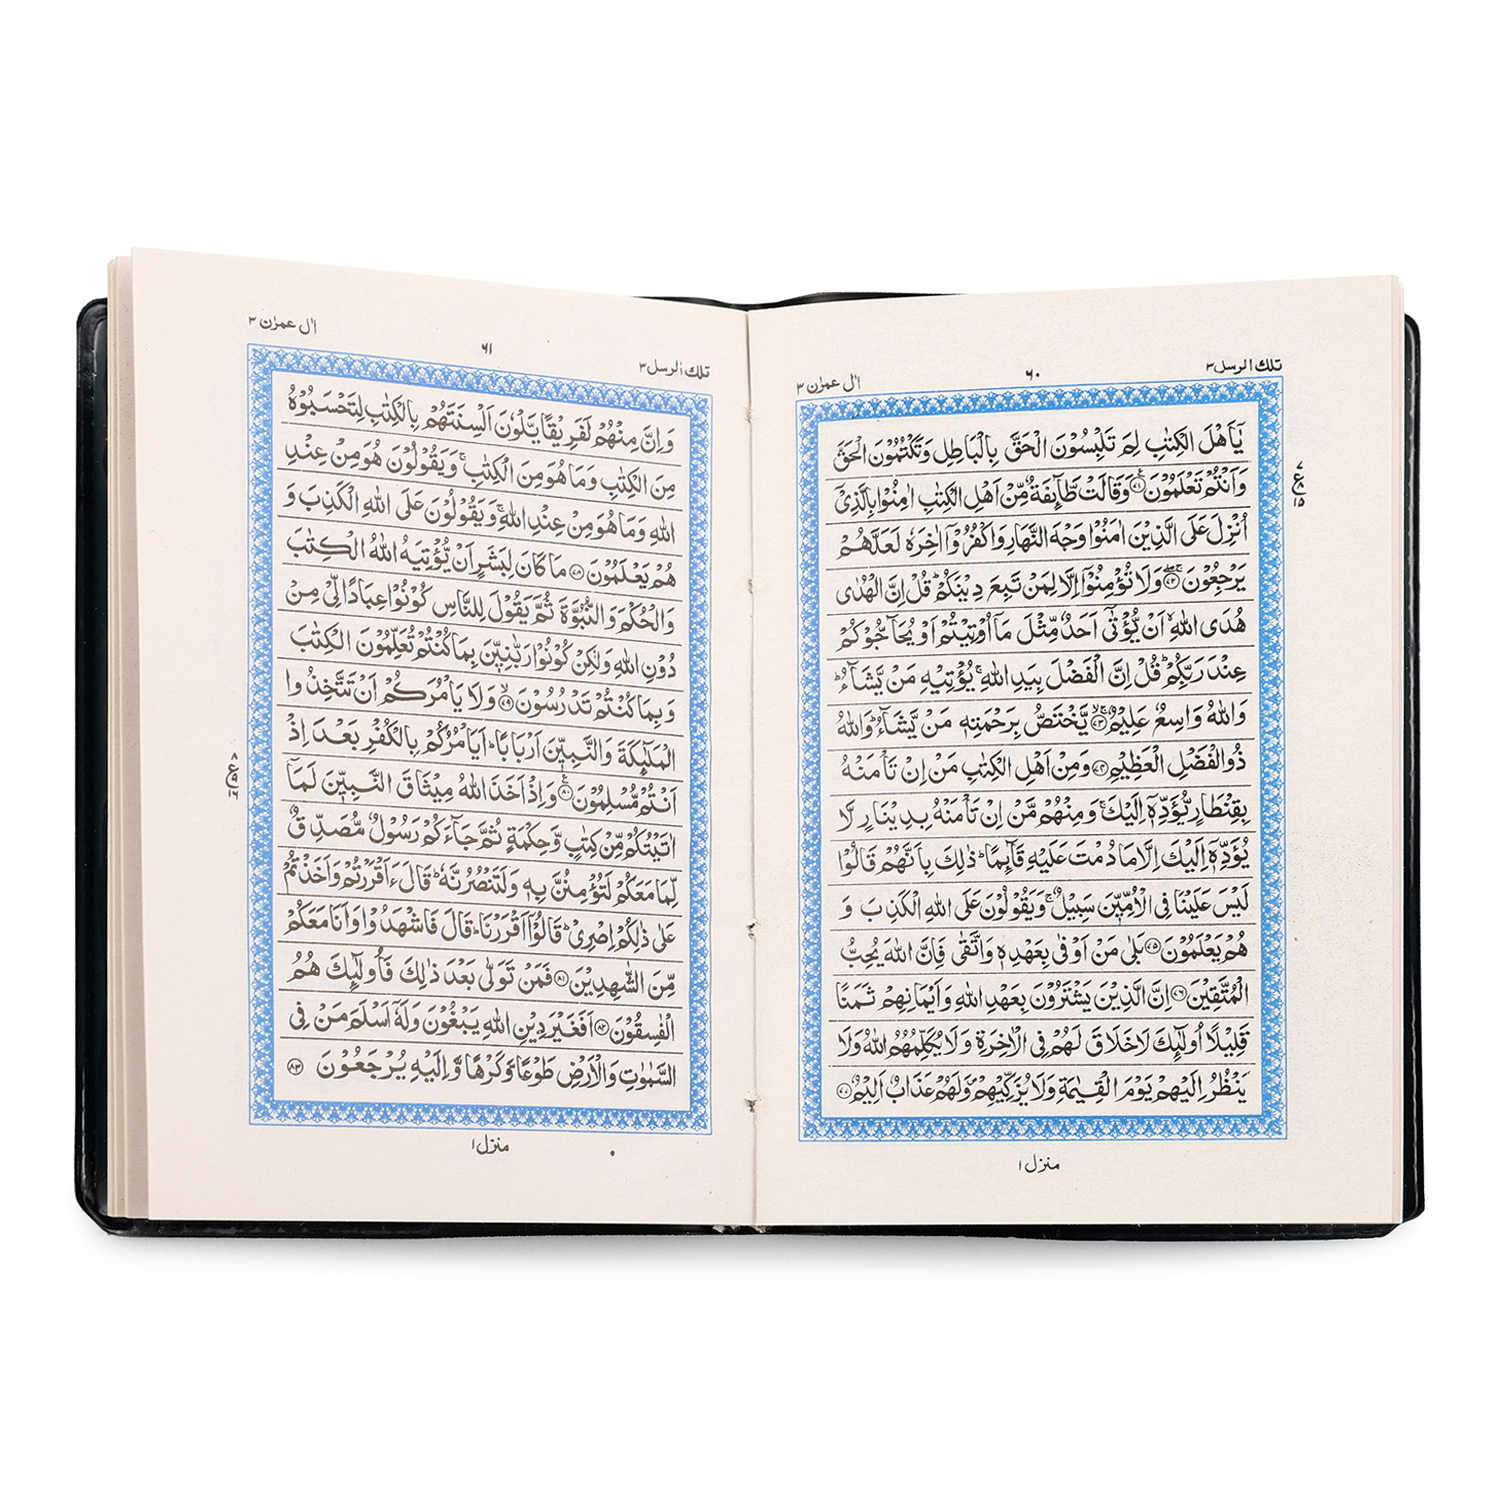 تلك الرسل ٣
٦٠
اٰل عمرٰن ٣
يٰٓاَهْلَ الْكِتٰبِ لِمَ تَلْبِسُوْنَ الْحَقَّ بِالْبَاطِلِ وَتَكْتُمُوْنَ الْحَقَّ
وَاَنْتُمْ تَعْلَمُوْنَ ﴿٧١﴾ وَقَالَتْ طَّآئِفَةٌ مِّنْ اَهْلِ الْكِتٰبِ اٰمِنُوْا بِالَّذِيْٓ
اُنْزِلَ عَلَى الَّذِيْنَ اٰمَنُوْا وَجْهَ النَّهَارِ وَاكْفُرُوْٓا اٰخِرَهٗ لَعَلَّهُمْ
يَرْجِعُوْنَ ﴿٧٢﴾ وَلَا تُؤْمِنُوْٓا اِلَّا لِمَنْ تَبِعَ دِيْنَكُمْ ؕ قُلْ اِنَّ الْهُدٰى
هُدَى اللّٰهِ ۙ اَنْ يُّؤْتٰٓى اَحَدٌ مِّثْلَ مَآ اُوْتِيْتُمْ اَوْ يُحَآجُّوْكُمْ
عِنْدَ رَبِّكُمْ ؕ قُلْ اِنَّ الْفَضْلَ بِيَدِ اللّٰهِ ۚ يُؤْتِيْهِ مَنْ يَّشَآءُ ؕ
وَاللّٰهُ وَاسِعٌ عَلِيْمٌ ﴿٧٣﴾ يَّخْتَصُّ بِرَحْمَتِهٖ مَنْ يَّشَآءُ ؕ وَاللّٰهُ
ذُو الْفَضْلِ الْعَظِيْمِ ﴿٧٤﴾ وَمِنْ اَهْلِ الْكِتٰبِ مَنْ اِنْ تَاْمَنْهُ
بِقِنْطَارٍ يُّؤَدِّهٖٓ اِلَيْكَ ۚ وَمِنْهُمْ مَّنْ اِنْ تَاْمَنْهُ بِدِيْنَارٍ لَّا
يُؤَدِّهٖٓ اِلَيْكَ اِلَّا مَا دُمْتَ عَلَيْهِ قَآئِمًا ؕ ذٰلِكَ بِاَنَّهُمْ قَالُوْا
لَيْسَ عَلَيْنَا فِى الْاُمِّيّٖنَ سَبِيْلٌ ۚ وَيَقُوْلُوْنَ عَلَى اللّٰهِ الْكَذِبَ وَ
هُمْ يَعْلَمُوْنَ ﴿٧٥﴾ بَلٰى مَنْ اَوْفٰى بِعَهْدِهٖ وَاتَّقٰى فَاِنَّ اللّٰهَ يُحِبُّ
الْمُتَّقِيْنَ ﴿٧٦﴾ اِنَّ الَّذِيْنَ يَشْتَرُوْنَ بِعَهْدِ اللّٰهِ وَاَيْمَانِهِمْ ثَمَنًا
قَلِيْلًا اُولٰٓئِكَ لَا خَلَاقَ لَهُمْ فِى الْاٰخِرَةِ وَلَا يُكَلِّمُهُمُ اللّٰهُ وَلَا
يَنْظُرُ اِلَيْهِمْ يَوْمَ الْقِيٰمَةِ وَلَا يُزَكِّيْهِمْ ۪ وَلَهُمْ عَذَابٌ اَلِيْمٌ ﴿٧٧﴾
منزل ١
تلك الرسل ٣
٦١
اٰل عمرٰن ٣
وَاِنَّ مِنْهُمْ لَفَرِيْقًا يَّلْوٗنَ اَلْسِنَتَهُمْ بِالْكِتٰبِ لِتَحْسَبُوْهُ
مِنَ الْكِتٰبِ وَمَا هُوَ مِنَ الْكِتٰبِ ۚ وَيَقُوْلُوْنَ هُوَ مِنْ عِنْدِ
اللّٰهِ وَمَا هُوَ مِنْ عِنْدِ اللّٰهِ ۚ وَيَقُوْلُوْنَ عَلَى اللّٰهِ الْكَذِبَ وَ
هُمْ يَعْلَمُوْنَ ﴿٧٨﴾ مَا كَانَ لِبَشَرٍ اَنْ يُّؤْتِيَهُ اللّٰهُ الْكِتٰبَ
وَالْحُكْمَ وَالنُّبُوَّةَ ثُمَّ يَقُوْلَ لِلنَّاسِ كُوْنُوْا عِبَادًا لِّىْ مِنْ
دُوْنِ اللّٰهِ وَلٰكِنْ كُوْنُوْا رَبّٰنِيّٖنَ بِمَا كُنْتُمْ تُعَلِّمُوْنَ الْكِتٰبَ
وَبِمَا كُنْتُمْ تَدْرُسُوْنَ ﴿٧٩﴾ وَلَا يَاْمُرَكُمْ اَنْ تَتَّخِذُوا
الْمَلٰٓئِكَةَ وَالنَّبِيّٖنَ اَرْبَابًا ؕ اَيَاْمُرُكُمْ بِالْكُفْرِ بَعْدَ اِذْ
اَنْتُمْ مُّسْلِمُوْنَ ﴿٨٠﴾ وَاِذْ اَخَذَ اللّٰهُ مِيْثَاقَ النَّبِيّٖنَ لَمَآ
اٰتَيْتُكُمْ مِّنْ كِتٰبٍ وَّحِكْمَةٍ ثُمَّ جَآءَكُمْ رَسُوْلٌ مُّصَدِّقٌ
لِّمَا مَعَكُمْ لَتُؤْمِنُنَّ بِهٖ وَلَتَنْصُرُنَّهٗ ؕ قَالَ ءَاَقْرَرْتُمْ وَاَخَذْتُمْ
عَلٰى ذٰلِكُمْ اِصْرِىْ ؕ قَالُوْٓا اَقْرَرْنَا ؕ قَالَ فَاشْهَدُوْا وَاَنَا مَعَكُمْ
مِّنَ الشّٰهِدِيْنَ ﴿٨١﴾ فَمَنْ تَوَلّٰى بَعْدَ ذٰلِكَ فَاُولٰٓئِكَ هُمُ
الْفٰسِقُوْنَ ﴿٨٢﴾ اَفَغَيْرَ دِيْنِ اللّٰهِ يَبْغُوْنَ وَلَهٗٓ اَسْلَمَ مَنْ فِى
السَّمٰوٰتِ وَالْاَرْضِ طَوْعًا وَّكَرْهًا وَّاِلَيْهِ يُرْجَعُوْنَ ﴿٨٣﴾
منزل ١